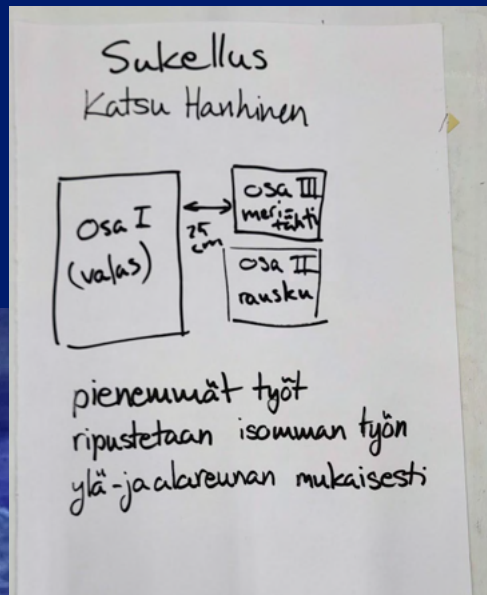 Sukellus
Katsu Hanhinen
Osa I
(valas)
25
cm
Osa III
meri-
tähti
Osa II
rausku
pienemmät työt
ripustetaan isomman työn
ylä-ja alareunan mukaisesti